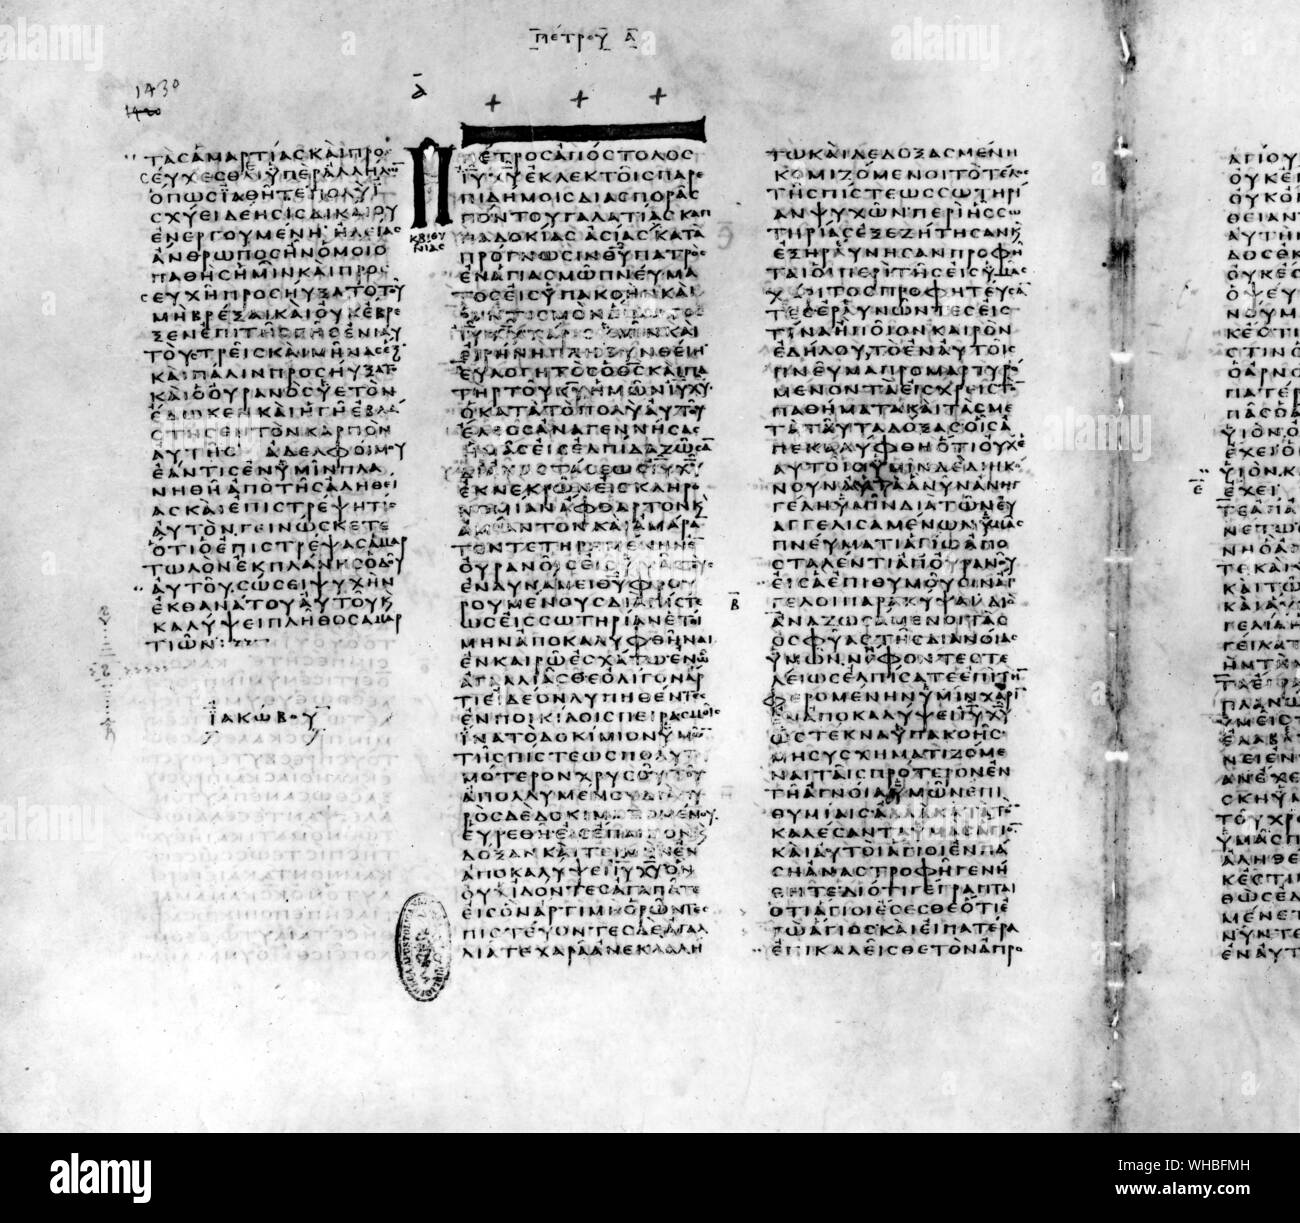 ΠΕΤΡΟΥ Α
1430
Α
+ + +
ΤΑϹ ΑΜΑΡΤΙΑϹ ΚΑΙ ΠΡΟϹ
ΕΥΧΕϹΘΕ ΥΠΕΡ ΑΛΛΗΛΩ
ΟΠΩϹ ΙΑΘΗΤΕ ΠΟΛΥ Ι
ϹΧΥΕΙ ΔΕΗϹΙϹ ΔΙΚΑΙΟΥ
ΕΝΕΡΓΟΥΜΕΝΗ ΗΛΕΙΑϹ
ΑΝΘΡΩΠΟϹ ΗΝ ΟΜΟΙΟ
ΠΑΘΗϹ ΗΜΙΝ ΚΑΙ ΠΡΟϹ
ΕΥΧΗ ΠΡΟϹΗΥΞΑΤΟ ΤΟΥ
ΜΗ ΒΡΕΞΑΙ ΚΑΙ ΟΥΚ ΕΒΡΕ
ΞΕΝ ΕΠΙ ΤΗϹ ΓΗϹ ΕΝΙΑΥ
ΤΟΥϹ ΤΡΕΙϹ ΚΑΙ ΜΗΝΑϹ ΕΞ
ΚΑΙ ΠΑΛΙΝ ΠΡΟϹΗΥΞΑΤΟ
ΚΑΙ Ο ΟΥΡΑΝΟϹ ΥΕΤΟΝ
ΕΔΩΚΕΝ ΚΑΙ Η ΓΗ ΕΒΛΑ
ϹΤΗϹΕΝ ΤΟΝ ΚΑΡΠΟΝ
ΑΥΤΗϹ ΑΔΕΛΦΟΙ ΜΟΥ
ΕΑΝ ΤΙϹ ΕΝ ΥΜΙΝ ΠΛΑ
ΝΗΘΗ ΑΠΟ ΤΗϹ ΑΛΗΘΕΙ
ΑϹ ΚΑΙ ΕΠΙϹΤΡΕΨΗ ΤΙϹ
ΑΥΤΟΝ ΓΕΙΝΩϹΚΕΤΕ
ΟΤΙ Ο ΕΠΙϹΤΡΕΨΑϹ ΑΜΑΡ
ΤΩΛΟΝ ΕΚ ΠΛΑΝΗϹ ΟΔΟΥ
ΑΥΤΟΥ ϹΩϹΕΙ ΨΥΧΗΝ
ΕΚ ΘΑΝΑΤΟΥ ΑΥΤΟΥ Κ
ΚΑΛΥΨΕΙ ΠΛΗΘΟϹ ΑΜΑΡ
ΤΙΩΝ
ΙΑΚΩΒΟΥ
ΠΕΤΡΟϹ ΑΠΟϹΤΟΛΟϹ
ΙΥ ΧΥ ΕΚΛΕΚΤΟΙϹ ΠΑΡΕ
ΠΙΔΗΜΟΙϹ ΔΙΑϹΠΟΡΑϹ
ΠΟΝΤΟΥ ΓΑΛΑΤΙΑϹ ΚΑΠ
ΠΑΔΟΚΙΑϹ ΑϹΙΑϹ ΚΑΤΑ
Κ ΒΙΘΥ
ΝΙΑϹ
ΠΡΟΓΝΩϹΙΝ ΘΥ ΠΑΤΡΟϹ
ΕΝ ΑΓΙΑϹΜΩ ΠΝΕΥΜΑ
ΤΟϹ ΕΙϹ ΥΠΑΚΟΗΝ ΚΑΙ
ΡΑΝΤΙϹΜΟΝ ΑΙΜΑΤΟϹ
ΙΥ ΧΥ ΧΑΡΙϹ ΥΜΙΝ ΚΑΙ
ΕΙΡΗΝΗ ΠΛΗΘΥΝΘΕΙΗ
ΕΥΛΟΓΗΤΟϹ Ο ΘϹ ΚΑΙ ΠΑ
ΤΗΡ ΤΟΥ ΚΥ ΗΜΩΝ ΙΥ ΧΥ
Ο ΚΑΤΑ ΤΟ ΠΟΛΥ ΑΥΤΟΥ
ΕΛΕΟϹ ΑΝΑΓΕΝΝΗϹΑϹ
ΗΜΑϹ ΕΙϹ ΕΛΠΙΔΑ ΖΩϹΑ
ΔΙ ΑΝΑϹΤΑϹΕΩϹ ΙΥ ΧΥ
ΕΚ ΝΕΚΡΩΝ ΕΙϹ ΚΛΗΡΟ
ΝΟΜΙΑΝ ΑΦΘΑΡΤΟΝ Κ
ΑΜΙΑΝΤΟΝ ΚΑΙ ΑΜΑΡΑ
ΤΟΝ ΤΕΤΗΡΗΜΕΝΗΝ Ε
ΟΥΡΑΝΟΙϹ ΕΙϹ ΥΜΑϹ ΤΟΥϹ
ΕΝ ΔΥΝΑΜΕΙ ΘΥ ΦΡΟΥ
ΡΟΥΜΕΝΟΥϹ ΔΙΑ ΠΙϹΤΕ
ΩϹ ΕΙϹ ϹΩΤΗΡΙΑΝ ΕΤΟΙ
ΜΗΝ ΑΠΟΚΑΛΥΦΘΗΝΑΙ
ΕΝ ΚΑΙΡΩ ΕϹΧΑΤΩ ΕΝ Ω
ΑΓΑΛΛΙΑϹΘΕ ΟΛΙΓΟΝ ΑΡ
ΤΙ ΕΙ ΔΕΟΝ ΛΥΠΗΘΕΝΤΕϹ
ΕΝ ΠΟΙΚΙΛΟΙϹ ΠΕΙΡΑϹΜΟΙϹ
ΙΝΑ ΤΟ ΔΟΚΙΜΙΟΝ ΥΜΩ
ΤΗϹ ΠΙϹΤΕΩϹ ΠΟΛΥΤΙ
ΜΟΤΕΡΟΝ ΧΡΥϹΙΟΥ ΤΟΥ
ΑΠΟΛΛΥΜΕΝΟΥ ΔΙΑ ΠΥ
ΡΟϹ ΔΕ ΔΟΚΙΜΑΖΟΜΕΝΟΥ
ΕΥΡΕΘΗ ΕΙϹ ΕΠΑΙΝΟΝ Κ
ΔΟΞΑΝ ΚΑΙ ΤΕΙΜΗΝ ΕΝ
ΑΠΟΚΑΛΥΨΕΙ ΙΥ ΧΥ ΟΝ
ΟΥΧ ΙΔΟΝΤΕϹ ΑΓΑΠΑΤΕ
ΕΙϹ ΟΝ ΑΡΤΙ ΜΗ ΟΡΩΝΤΕϹ
ΠΙϹΤΕΥΟΝΤΕϹ ΔΕ ΑΓΑΛ
ΛΙΑΤΕ ΧΑΡΑ ΑΝΕΚΛΑΛΗ
Β
ΤΩ ΚΑΙ ΔΕΔΟΞΑϹΜΕΝΗ
ΚΟΜΙΖΟΜΕΝΟΙ ΤΟ ΤΕΛΟϹ
ΤΗϹ ΠΙϹΤΕΩϹ ϹΩΤΗΡΙ
ΑΝ ΨΥΧΩΝ ΠΕΡΙ ΗϹ ϹΩ
ΤΗΡΙΑϹ ΕΞΕΖΗΤΗϹΑΝ Κ
ΕΞΗΡΑΥΝΗϹΑΝ ΠΡΟΦΗ
ΤΑΙ ΟΙ ΠΕΡΙ ΤΗϹ ΕΙϹ ΥΜΑϹ
ΧΑΡΙΤΟϹ ΠΡΟΦΗΤΕΥϹΑ
ΤΕϹ ΕΡΑΥΝΩΝΤΕϹ ΕΙϹ
ΤΙΝΑ Η ΠΟΙΟΝ ΚΑΙΡΟΝ
ΕΔΗΛΟΥ ΤΟ ΕΝ ΑΥΤΟΙϹ
ΠΝΕΥΜΑ ΠΡΟΜΑΡΤΥΡΟ
ΜΕΝΟΝ ΤΑ ΕΙϹ ΧΡΕΙϹΤΟ
ΠΑΘΗΜΑΤΑ ΚΑΙ ΤΑϹ ΜΕ
ΤΑ ΤΑΥΤΑ ΔΟΞΑϹ ΟΙϹ Α
ΠΕΚΑΛΥΦΘΗ ΟΤΙ ΟΥΧ Ε
ΑΥΤΟΙϹ ΥΜΙΝ ΔΕ ΔΙΗΚΟ
ΝΟΥΝ ΑΥΤΑ Α ΝΥΝ ΑΝΗΓ
ΓΕΛΗ ΥΜΙΝ ΔΙΑ ΤΩΝ ΕΥ
ΑΓΓΕΛΙϹΑΜΕΝΩΝ ΥΜΑϹ
ΠΝΕΥΜΑΤΙ ΑΓΙΩ ΑΠΟ
ϹΤΑΛΕΝΤΙ ΑΠ ΟΥΡΑΝΟΥ
ΕΙϹ Α ΕΠΙΘΥΜΟΥϹΙΝ ΑΝ
ΓΕΛΟΙ ΠΑΡΑΚΥΨΑΙ ΔΙΟ
ΑΝΑΖΩϹΑΜΕΝΟΙ ΤΑϹ
ΟϹΦΥΑϹ ΤΗϹ ΔΙΑΝΟΙΑϹ
ΥΜΩΝ ΝΗΦΟΝΤΕϹ ΤΕ
ΛΕΙΩϹ ΕΛΠΙϹΑΤΕ ΕΠΙ ΤΗ
ΦΕΡΟΜΕΝΗΝ ΥΜΙΝ ΧΑΡΙ
ΕΝ ΑΠΟΚΑΛΥΨΕΙ ΙΥ ΧΥ
ΩϹ ΤΕΚΝΑ ΥΠΑΚΟΗϹ
ΜΗ ϹΥϹΧΗΜΑΤΙΖΟΜΕ
ΝΑΙ ΤΑΙϹ ΠΡΟΤΕΡΟΝ ΕΝ
ΤΗ ΑΓΝΟΙΑ ΥΜΩΝ ΕΠΙ
ΘΥΜΙΑΙϹ ΑΛΛΑ ΚΑΤΑ ΤΟ
ΚΑΛΕϹΑΝΤΑ ΥΜΑϹ ΑΓΙΟ
ΚΑΙ ΑΥΤΟΙ ΑΓΙΟΙ ΕΝ ΠΑ
ϹΗ ΑΝΑϹΤΡΟΦΗ ΓΕΝΗ
ΘΗΤΕ ΔΙΟΤΙ ΓΕΓΡΑΠΤΑΙ
ΟΤΙ ΑΓΙΟΙ ΕϹΕϹΘΕ ΟΤΙ Ε
ΓΩ ΑΓΙΟϹ ΚΑΙ ΕΙ ΠΑΤΕΡΑ
ΕΠΙΚΑΛΕΙϹΘΕ ΤΟΝ ΑΠΡΟ
Ε
ΑΓΙΟΥ
alamy
Image ID: WHBFMH
www.alamy.com